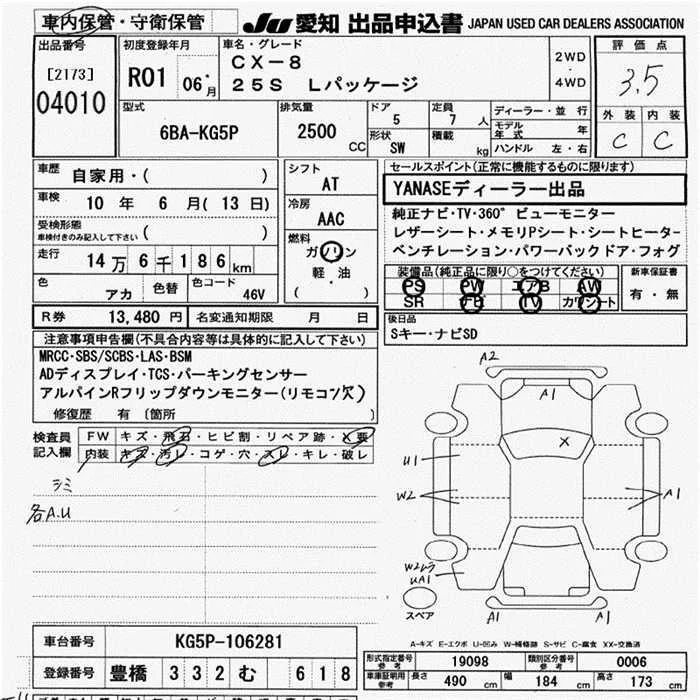 車内保管・守衛保管
JU 愛知 出品申込書 JAPAN USED CAR DEALERS ASSOCIATION
出品番号
[2173]
04010
初度登録年月
R01 06・月
車名・グレード
CX-8
25S Lパッケージ
2WD
・
4WD
評価点
3.5
外装 内装
C C
型式
6BA-KG5P
排気量
2500 CC
ドア
5
形状
SW
定員
7 人
積載
kg
ディーラー・並行
モデル年式 年
ハンドル 左・右
車歴
自家用・( )
車検
10年 6月(13日)
受検形態
車検付きのみ記入して下さい ( )
走行
14万6千186km
色
アカ
色替
色コード
46V
シフト
AT
冷房
AAC
燃料
ガソリン
軽・油
( )
R券 13,480円 名変通知期限 月 日
セールスポイント(正常に機能するものに限ります)
YANASEディーラー出品
純正ナビ・TV・360°ビューモニター
レザーシート・メモリPシート・シートヒーター
ベンチレーション・パワーバックドア・フォグ
装備品(純正品に限り○をつけてください)
PS PW エアB AW
SR ナビ TV カワシート
新車保証書
有・無
後日品
Sキー・ナビSD
注意事項申告欄(不具合内容等は具体的に記入して下さい)
MRCC・SBS/SCBS・LAS・BSM
ADディスプレイ・TCS・パーキングセンサー
アルパインRフリップダウンモニター(リモコン欠)
修復歴 有〔箇所 〕
検査員記入欄
FW キズ・飛石・ヒビ割・リペア跡・X要
内装 キズ・汚レ・コゲ・穴・スレ・キレ・破レ
シミ
各A.U
A2
A1
X
U1
W2
A1
W2ムラ
UA1
スペア
A1 A1
A-キズ E-エクボ U-凹み W-補修跡 S-サビ C-腐食 XX-交換済
車台番号 KG5P-106281
登録番号 豊橋 332 む 618
形式指定番号 参考 19098 類別区分番号 参考 0006
車庫証明用 参考 長さ 490 cm 幅 184 cm 高さ 173 cm